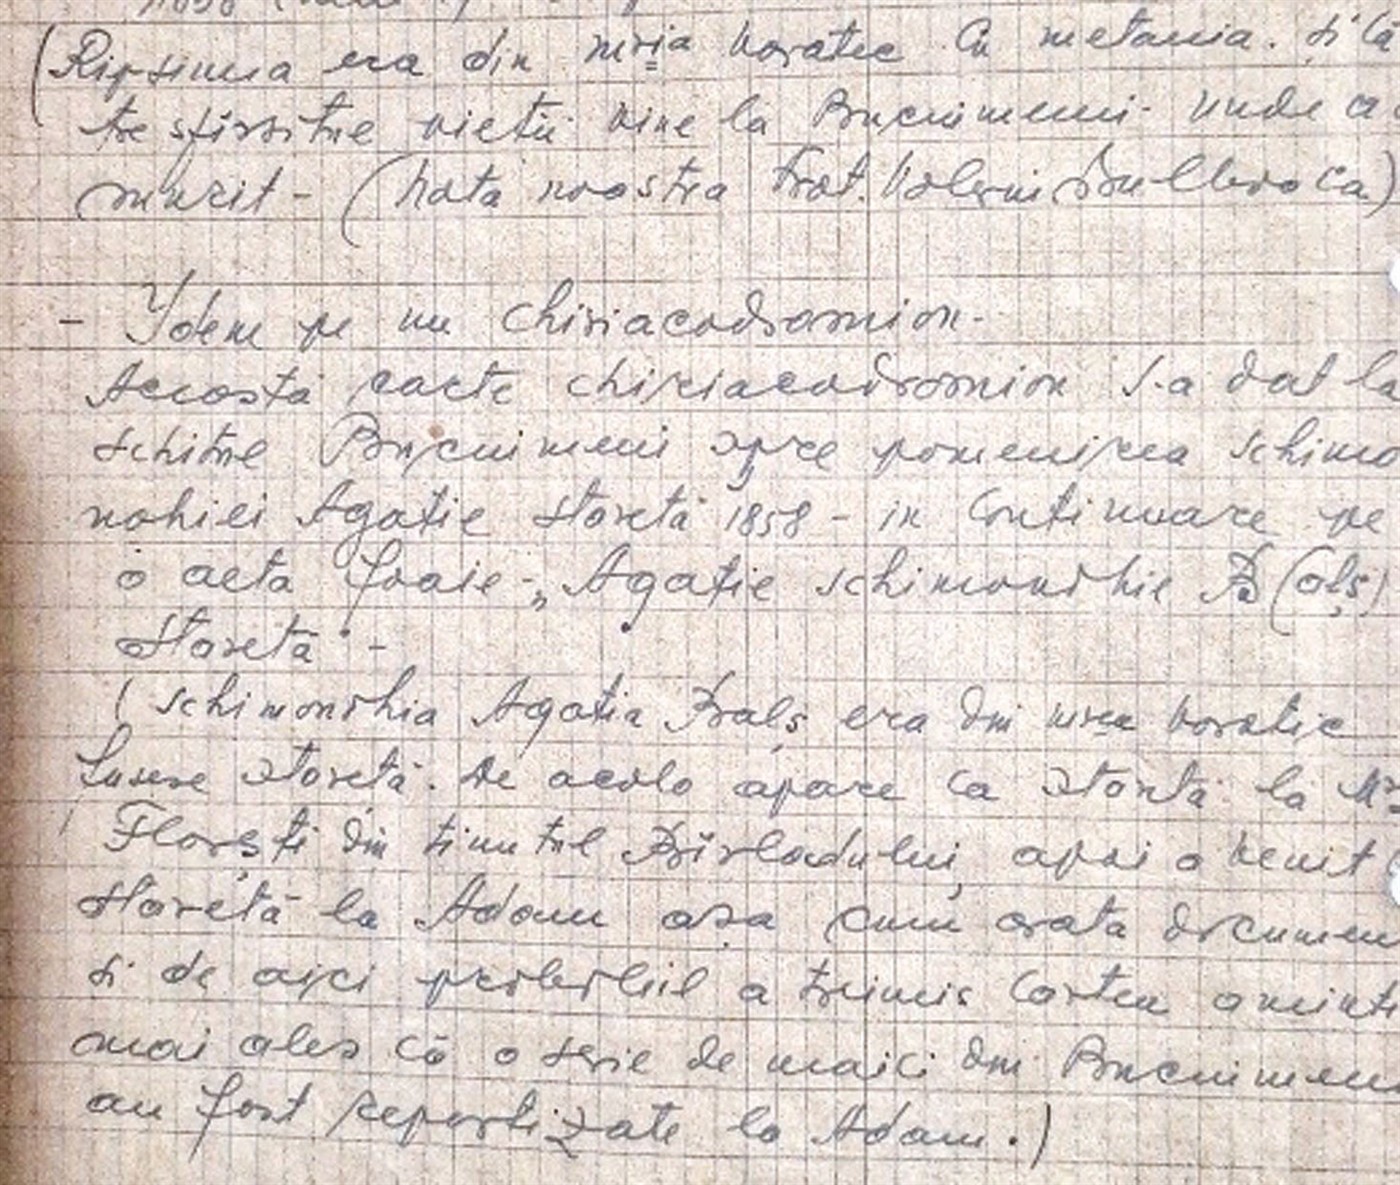 (Ripsimia era din m-rea Varatec cu metania. și că
tre sfîrsitul vietii vine la Buciumeni unde a
murit - (Nota noastra Prot.
- Ydem pe un chiriacodromion.
Aceasta carte chiriacodromion s-a dat la
schitul Buciumeni spre pomenirea schimo
nahiei Agatie staretă 1858 - in continuare pe
o alta foaie - „Agatie schimonahie Bă(olș)
staretă" -
(schimonahia Agatia Balș era din m-rea Varatic
fusese staretă. De acolo apare ca staretă la M-
Florești din tinutul Bîrladului, apoi a venit
staretă la Adam așa cum arata documen
si de aici probabil a trimis cartea amint
mai ales că o serie de maici din Buciumeni
au fost repartizate la Adam.)